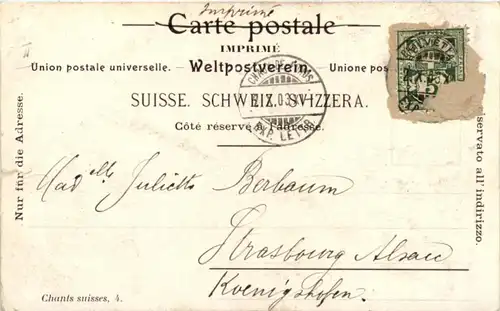 Imprimé
Carte postale
IMPRIMÉ
Union postale universelle. – Weltpostverein. – Unione pos
SUISSE. SCHWEIZ. SVIZZERA.
Côté réservé à l'adresse.
Nur für die Adresse.
servato all' indirizzo.
HELVETIA
5
Mad elle Juliette Berbaum
Strasbourg Alsace
Koenigshofen.
Chants suisses, 4.